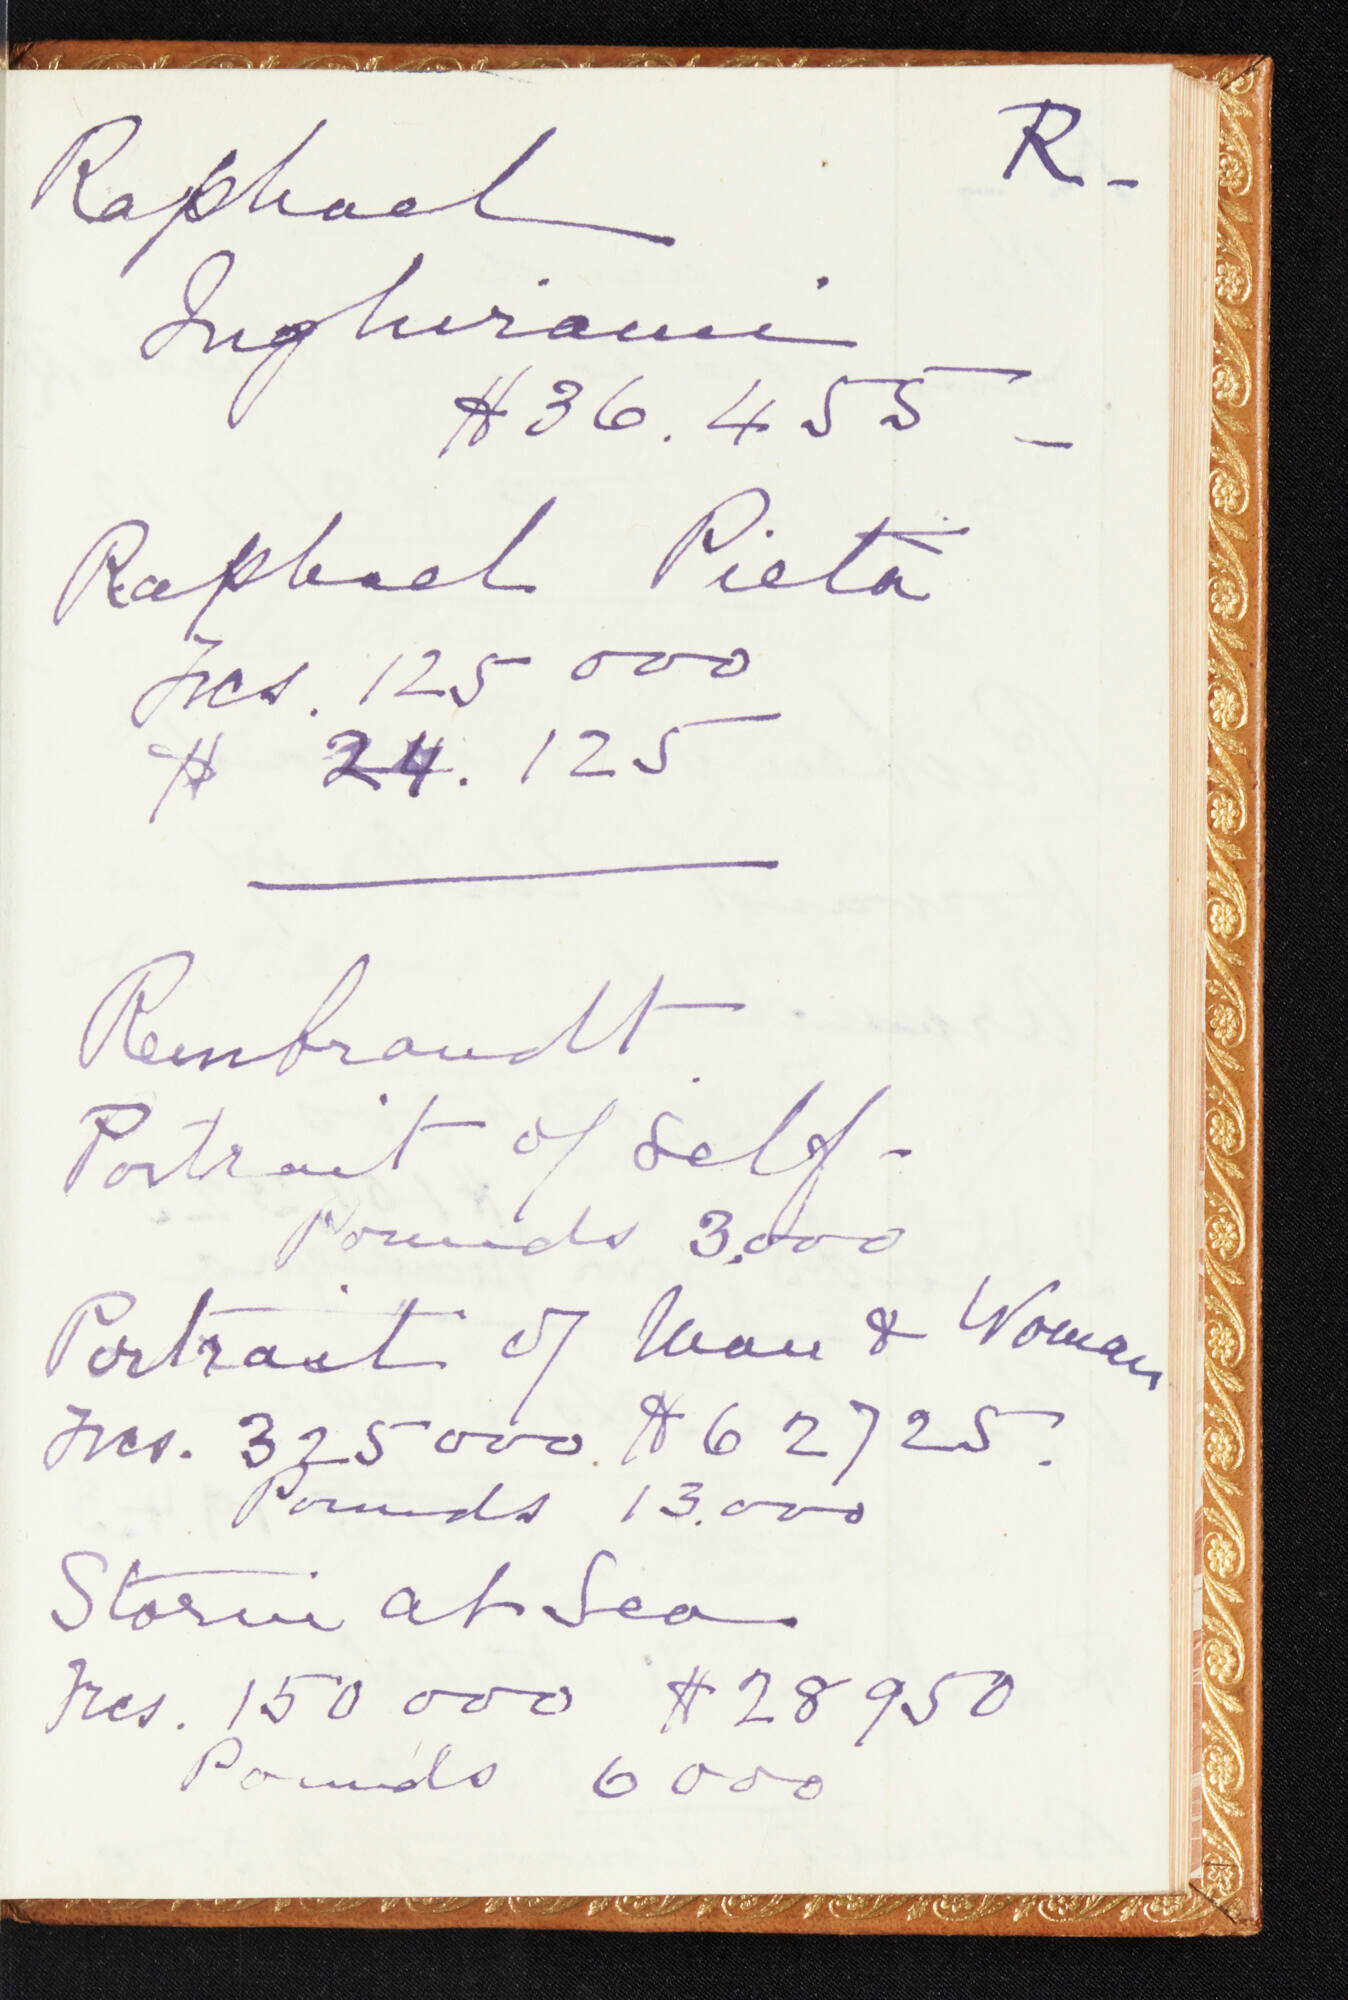 R-
Raphael
Inghirami
$36.455-
Raphael Pieta
Frcs. 125 000
$ 24.125
Rembrandt
Portrait of Self-
Pounds 3.000
Portrait of Man & Woman
Frcs. 325000 $62725.
Pounds 13.000
Storm at Sea
Frcs. 150 000 $28950
Pounds 6000